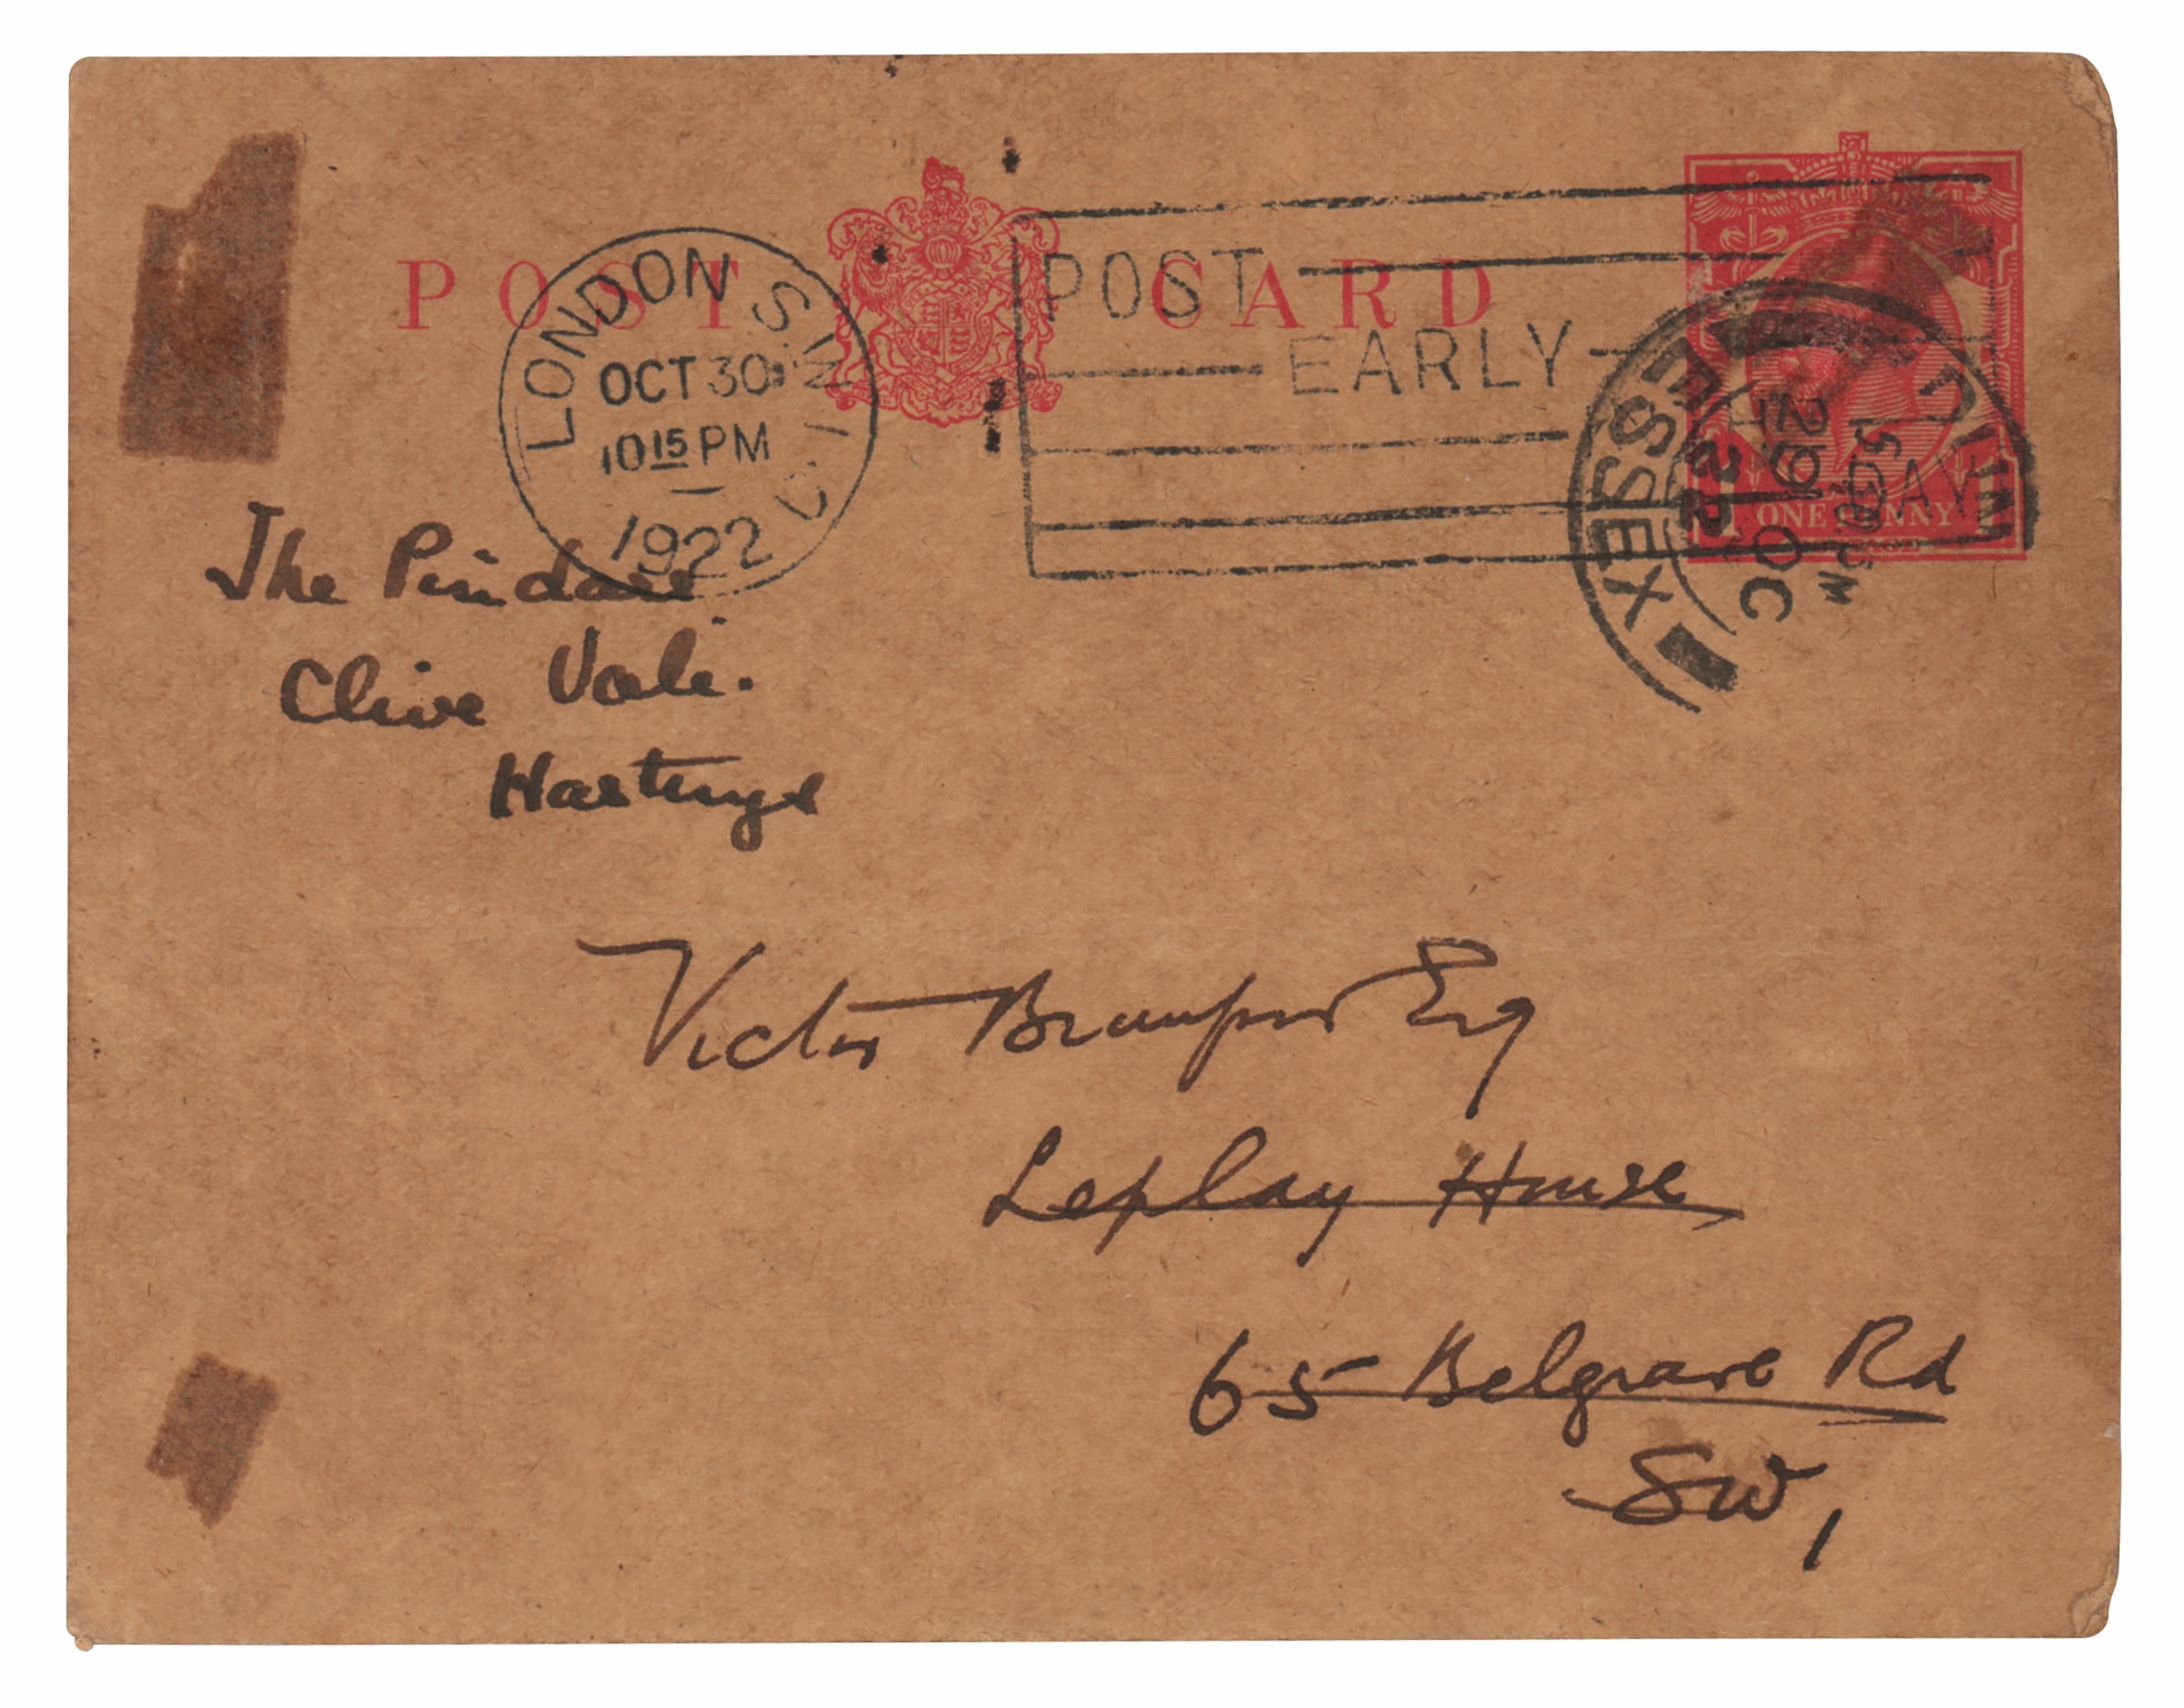 POST CARD
LONDON S.W.1
OCT 30
10 15 PM
1922
POST
EARLY
ESSEX
5 30 PM
29 OC
22
ONE PENNY
The Pindars
Clive Vale.
Hastings
Victor Branford Esq
Leplay House
65 Belgrave Rd
SW1